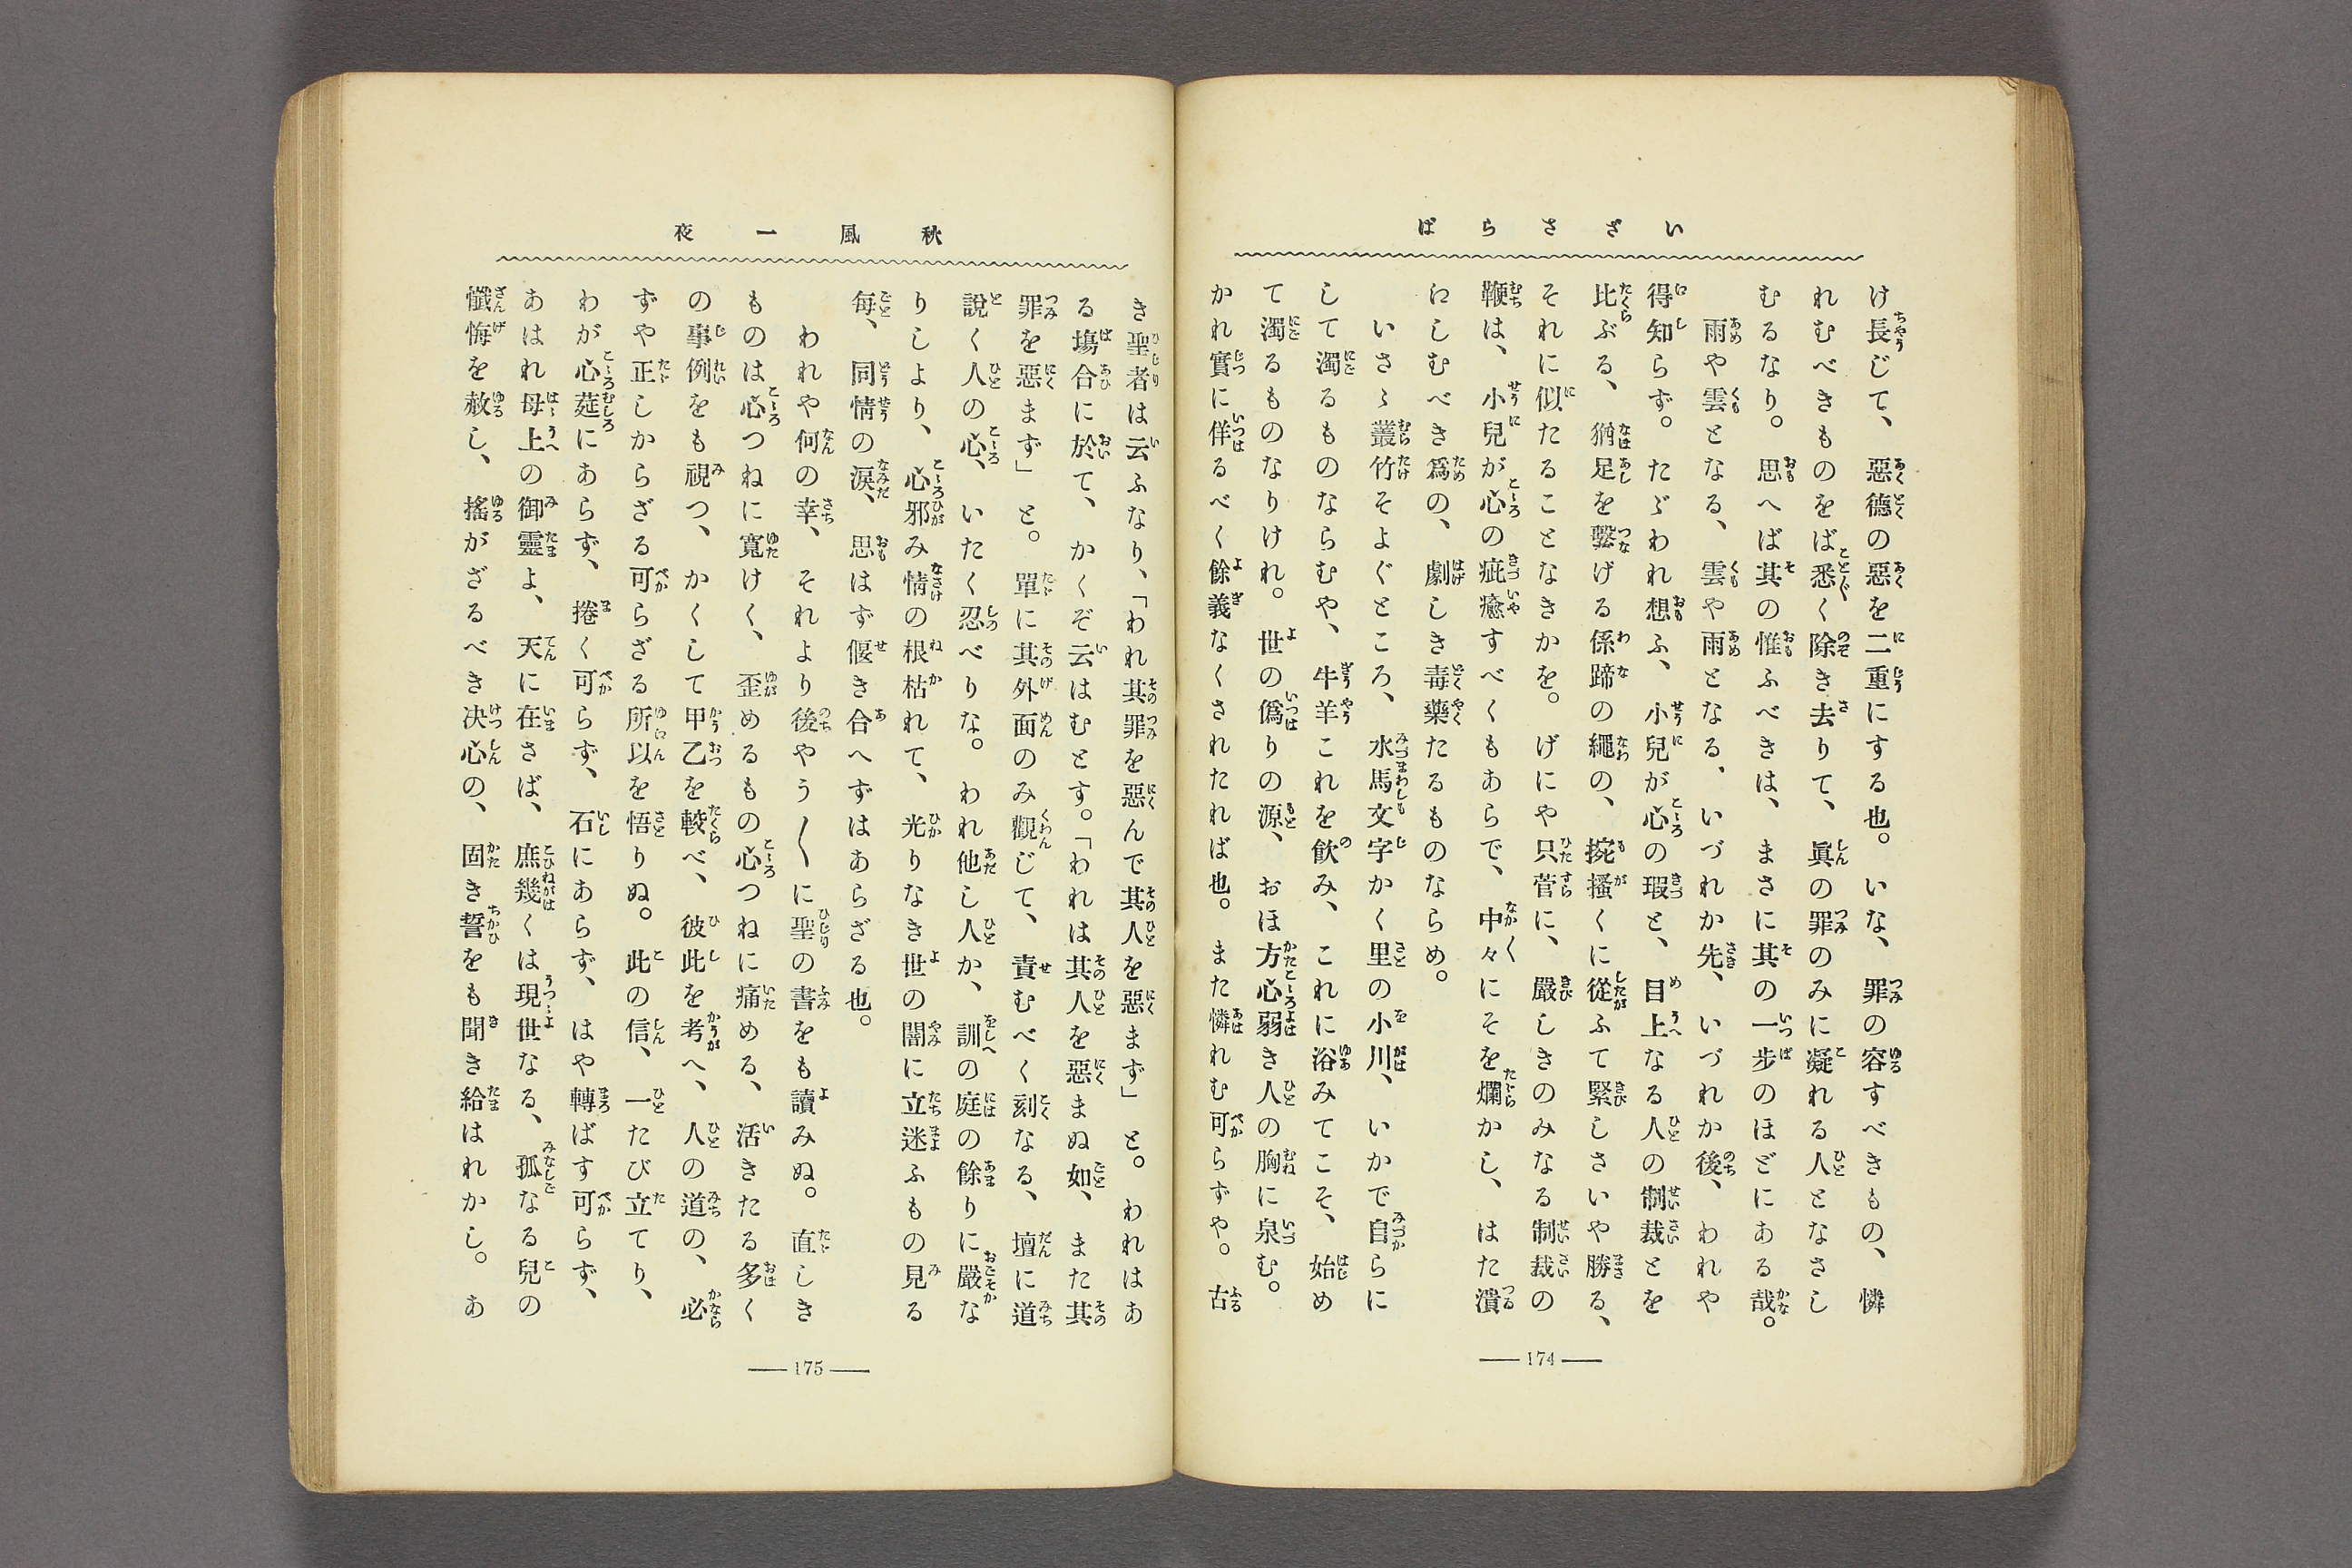 いざさらば
け長じて、惡德の惡を二重にする也。いな、罪の容すべきもの、憐
れむべきものをば悉く除き去りて、眞の罪のみに凝れる人となさし
むるなり。思へば其の惟ふべきは、まさに其の一步のほどにある哉。
雨や雲となる、雲や雨となる、いづれか先、いづれか後、われや
得知らず。たゞわれ想ふ、小兒が心の瑕と、目上なる人の制裁とを
比ぶる、猶足を繫げる係蹄の繩の、掟搔くに從ふて緊しさいや勝る、
それに似たることなきかを。げにや只菅に、嚴しきのみなる制裁の
鞭は、小兒が心の疵癒すべくもあらで、中々にそを爛かし、はた潰
にしむべき爲の、劇しき毒藥たるものならめ。
いさゝ叢竹そよぐところ、水馬文字かく里の小川、いかで自らに
して濁るものならむや、牛羊これを飮み、これに浴みてこそ、始め
て濁るものなりけれ。世の僞りの源、おほ方心弱き人の胸に泉む。
かれ實に佯るべく餘義なくされたれば也。また憐れむ可らずや。古
174
秋風一夜
き聖者は云ふなり、「われ其罪を惡んで其人を惡まず」と。われはあ
る塲合に於て、かくぞ云はむとす。「われは其人を惡まぬ如、また其
罪を惡まず」と。單に其外面のみ觀じて、責むべく刻なる、壇に道
說く人の心、いたく忍べりな。われ他し人か、訓の庭の餘りに嚴な
りしより、心邪み情の根枯れて、光りなき世の闇に立迷ふもの見る
每、同情の淚、思はず偃き合へずはあらざる也。
われや何の幸、それより後やう〳〵に聖の書をも讀みぬ。直しき
ものは心つねに寬けく、歪めるもの心つねに痛める、活きたる多く
の事例をも視つ、かくして甲乙を較べ、彼此を考へ、人の道の、必
ずや正しからざる可らざる所以を悟りぬ。此の信、一たび立てり、
わが心莚にあらず、捲く可らず、石にあらず、はや轉ばす可らず、
あはれ母上の御靈よ、天に在さば、庶幾くは現世なる、孤なる兒の
懺悔を赦し、搖がざるべき决心の、固き誓をも聞き給はれかし。あ
175